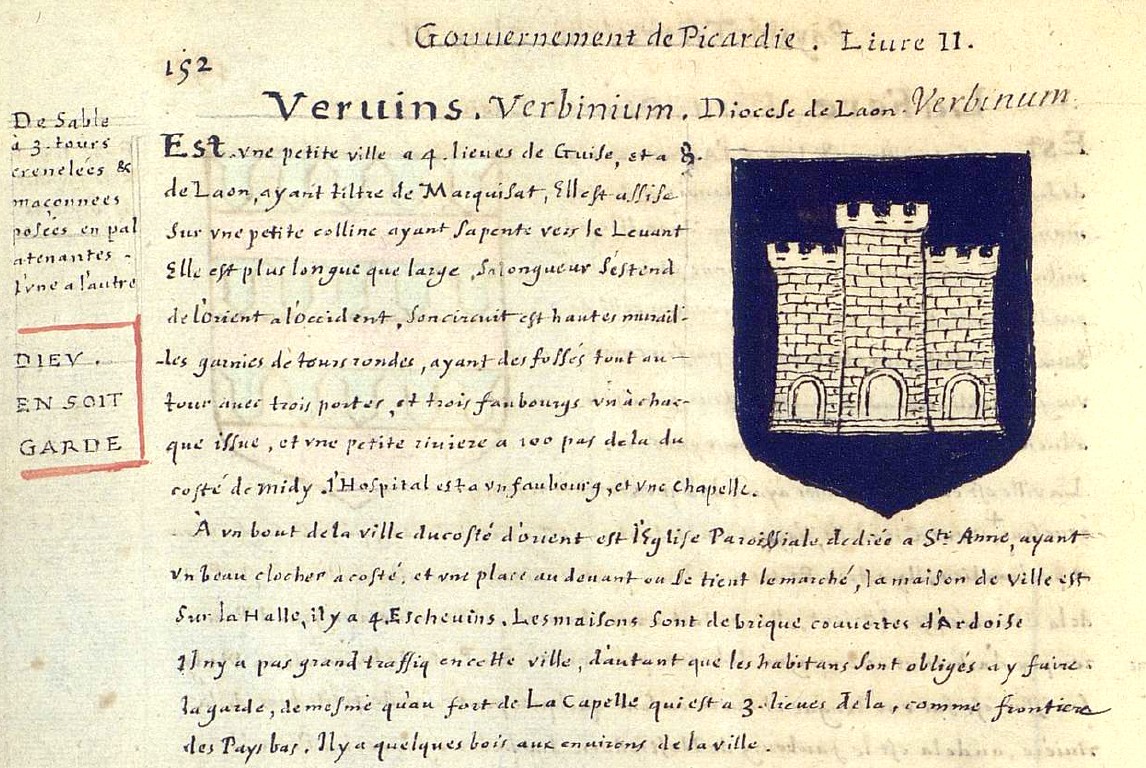 Gouuernement de Picardie. Liure II.
152
Veruins. Verbinium. Diocese de Laon. Verbinum.
De Sable
à 3. tours
crenelées &
maçonnees
posées en pal
atenantes -
l'vne a l'autre
DIEV.
EN SOIT
GARDE
Est vne petite ville a 4. lieues de Guise, et a 8.
de Laon, ayant tiltre de Marquisat, Elle st assise
sur vne petite colline ayant sa pente vers le Leuant
Elle est plus longue que large, sa longueur s'estend
de l'orient a l'occident, son circuit est hautes murail-
-les garnies de tours rondes, ayant des fossés tout au-
tour auec trois portes, et trois faubourgs vn à chac-
que issue, et vne petite riuiere a 100 pas de la du
costé de midy. l'Hospital est a vn faubourg, et vne Chapelle.
À vn bout de la ville du costé d'orient est l'Eglise Paroissiale dediée a Ste Anne, ayant
vn beau clocher a costé, et vne place au deuant ou se tient le marché, la maison de ville est
sur la Halle, il y a 4. Escheuins. Les maisons sont de brique couuertes d'Ardoise
Il ny a pas grand traffiq en cette ville, d'autant que les habitans sont obligés a y faire
la garde, de mesme qu'au fort de La Capelle qui est a 3. lieues de la, comme frontiere
des Pays bas. Il y a quelques bois aux enuirons de la ville.